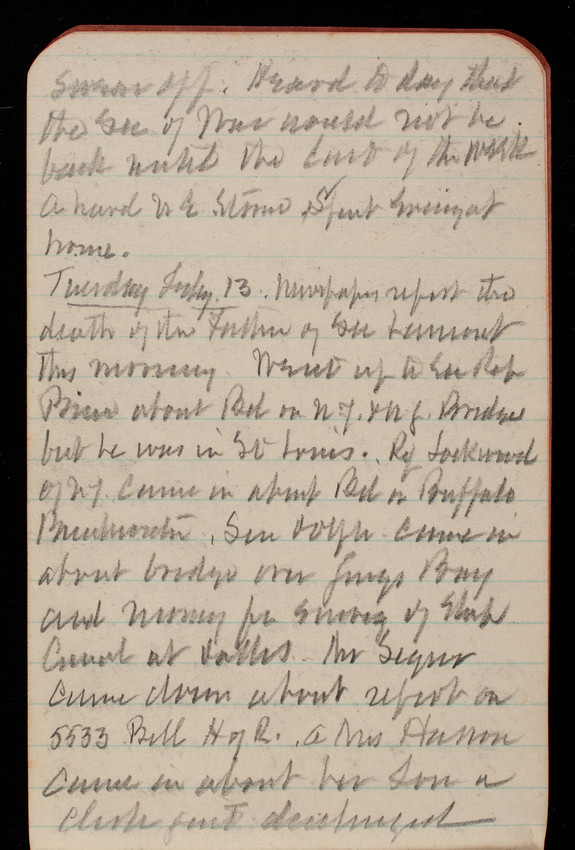 swear off. Heard to day that
the Sec of War would not be
back until the last of the week
A hard N E Storm. Spent Evening at
home.
Tuesday Feby 13. Newspapers report the
death of the Father of Sec Lamont
this morning. Went up to see Rep
about Bill on N.Y. & N.J. Bridge
but he was in St Louis. Rep Lockwood
of N.Y. Came in about Bill on Buffalo
Breakwater, Sen Dolph came in
about bridge over Youngs Bay
and money for survey of Ship
Canal at Dalles. Mr
Came down about report on
5533 Bill H of R. A Mrs
came in about her Son a
Clerk just discharged